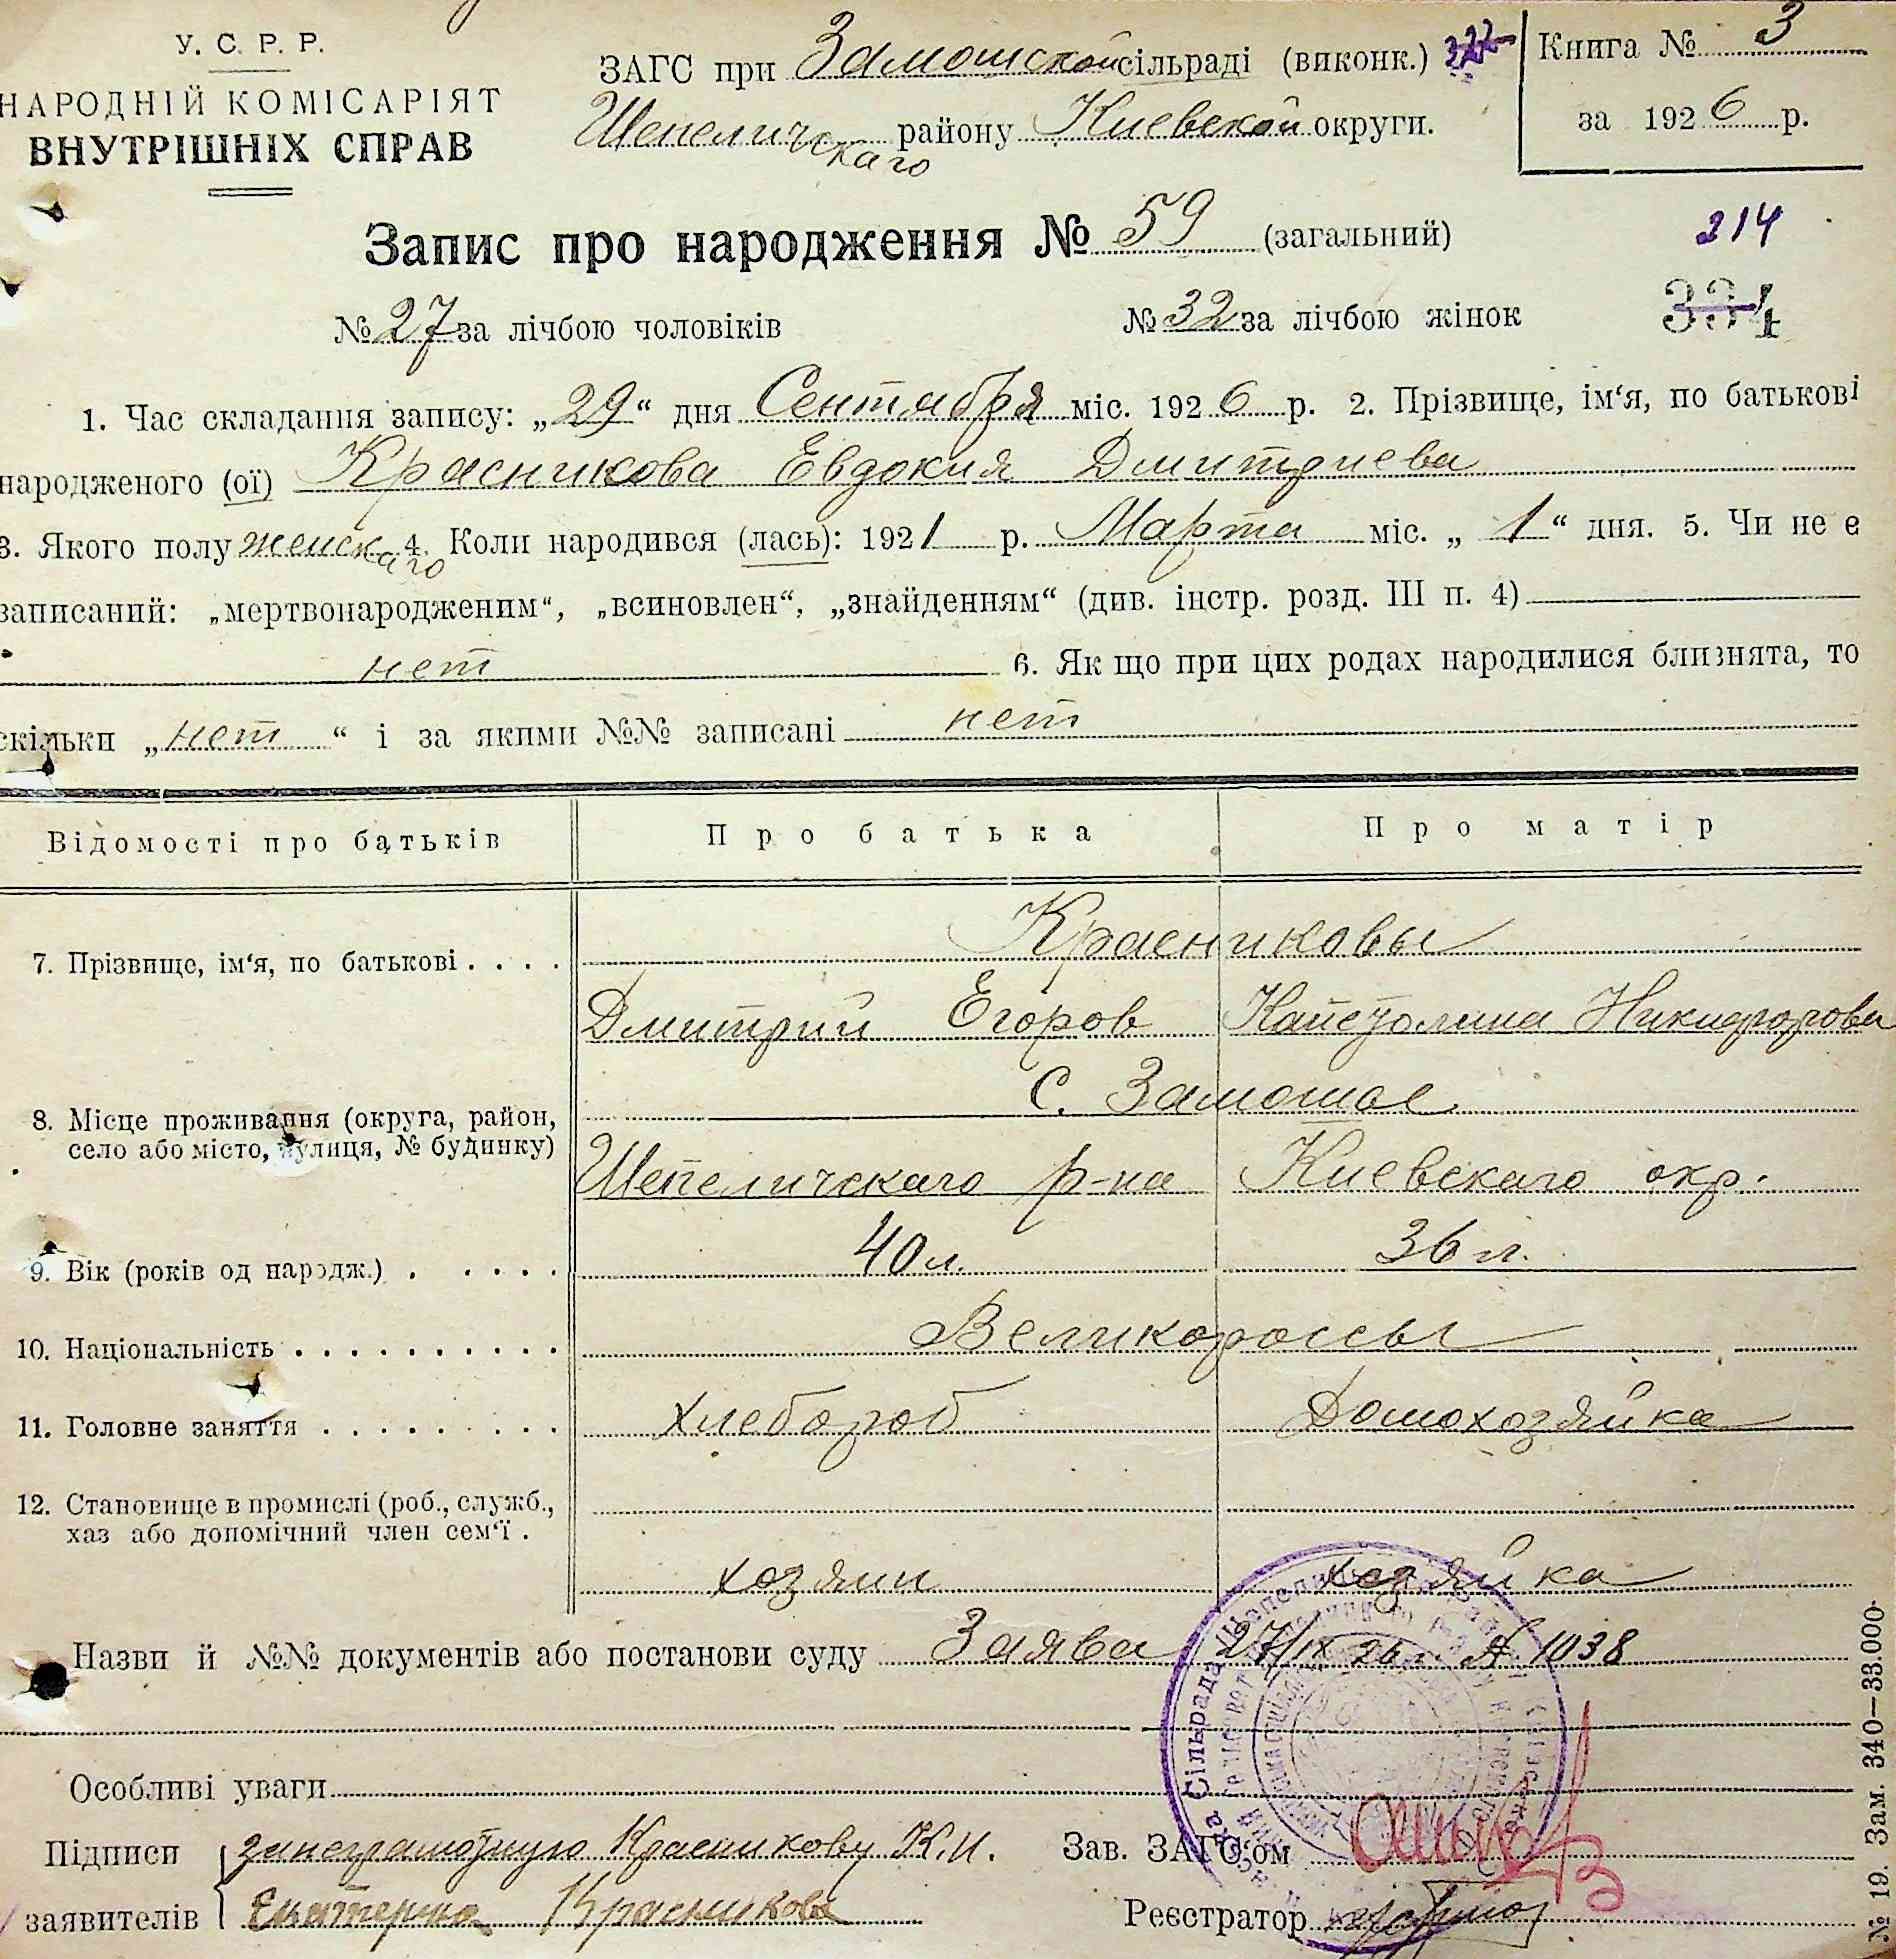 У. С. Р. Р.
НАРОДНІЙ КОМІСАРІЯТ
ВНУТРІШНІХ СПРАВ
ЗАГС при Замошской сільраді (виконк.) 322
Шепеличскаго району Киевской округи.
Книга № 3
за 1926 р.
Запис про народження № 59 (загальний)
214
№ 27 за лічбою чоловіків № 32 за лічбою жінок
334
1. Час складання запису: „29“ дня Сентября міс. 1926 р. 2. Прізвище, ім‘я, по батькові
народженого (ої) Красникова Евдокия Дмитриева
3. Якого полу женскаго 4. Коли народився (лась): 1921 р. Марта міс. „1“ дня. 5. Чи не є
записаний: „мертвонародженим“, „всиновлен“, „знайденням“ (див. інстр. розд. III п. 4)
нет 6. Як що при цих родах народилися близнята, то
скільки „нет“ і за якими №№ записані нет
Відомості про батьків Про батька Про матір
Красниковы
7. Прізвище, ім‘я, по батькові . . . .
Дмитрий Егоров Капетолина Никифорова
С. Замошье
8. Місце проживання (округа, район,
село або місто, вулиця, № будинку)
Шепеличскаго р-на Киевскаго окр.
9. Вік (років од народж.) . . . . . 40 л. 36 л.
10. Національність . . . . . . . . . . Великороссы
11. Головне заняття . . . . . . . . . хлебороб Домохозяйка
12. Становище в промислі (роб., служб.,
хаз або допомічний член сем‘ї .
хозяин хозяйка
Назви й №№ документів або постанови суду Заява 27/IX 26 г. № 1038
Особливі уваги
Підписи за неграмотную Красникову К.Н. Зав. ЗАГС‘ом
заявителів Екатерина Красникова Реєстратор
№ 19. Зам. 340—33.000